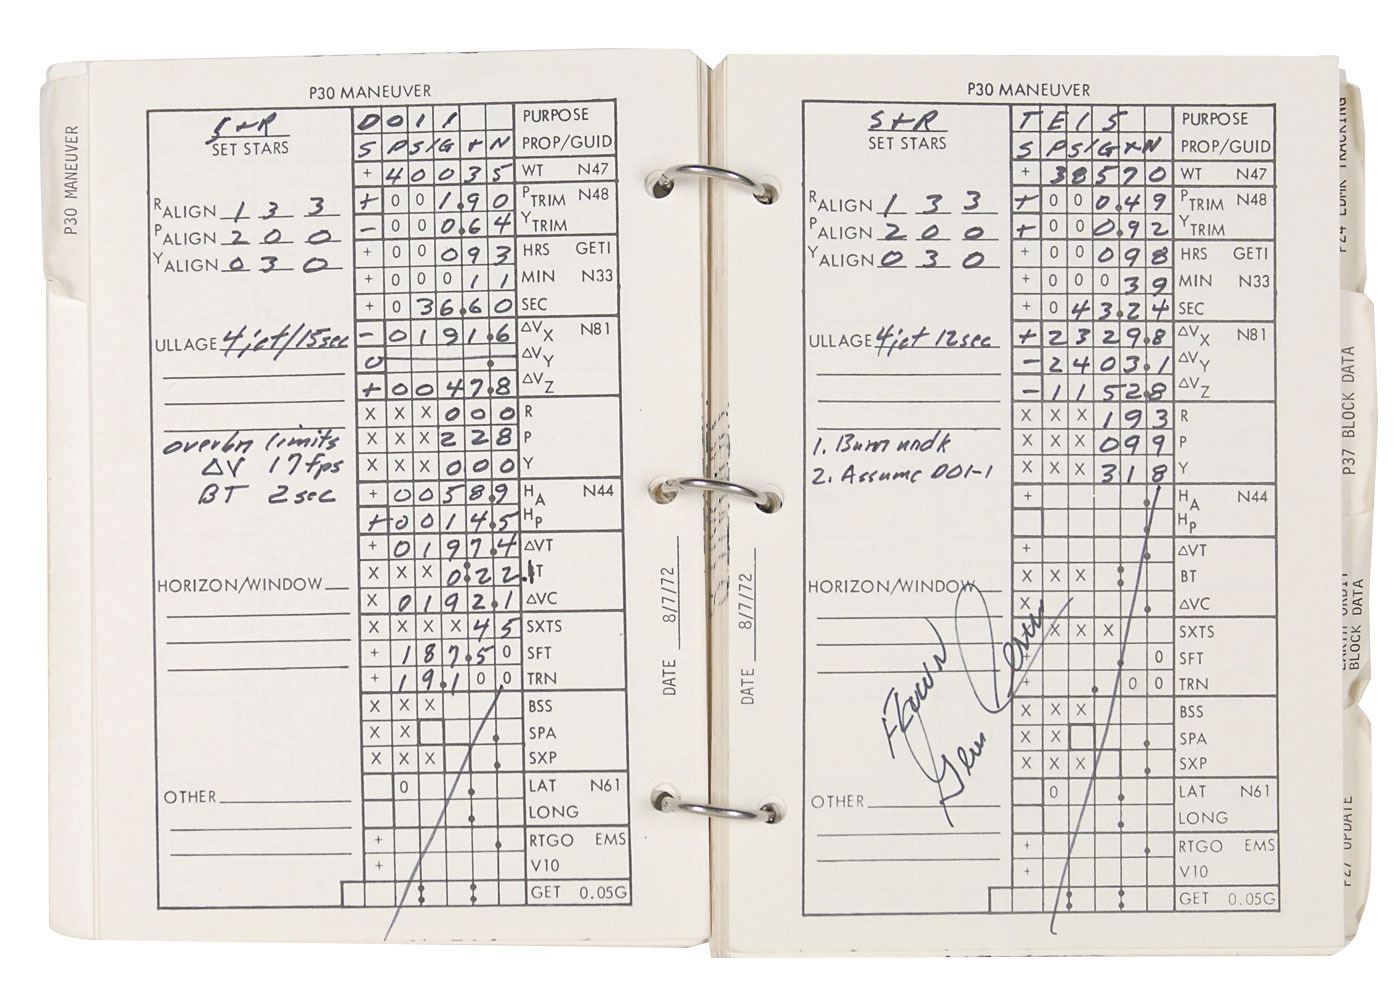 P30 MANEUVER
P30 MANEUVER
S+R
SET STARS
D O I 1 PURPOSE
S P S / G + N PROP/GUID
+ 4 0 0 3 5 WT N47
R ALIGN 1 3 3
+ 0 0 1.9 0 P TRIM N48
P ALIGN 2 0 0
- 0 0 0.6 4 Y TRIM
Y ALIGN 0 3 0
+ 0 0 0 9 3 HRS GETI
+ 0 0 0 1 1 MIN N33
+ 0 3 6.6 0 SEC
ULLAGE 4 jet/15sec
- 0 1 9 1.6 ΔVX N81
0 ΔVY
+ 0 0 4 7.8 ΔVZ
X X X 0 0 0 R
overbn limits
X X X 2 2 8 P
ΔV 17 fps
X X X 0 0 0 Y
BT 2 sec
+ 0 0 5 8.9 HA N44
+ 0 0 1 4.5 HP
+ 0 1 9 7.4 ΔVT
HORIZON/WINDOW
X X X 0:2 2 BT
X 0 1 9 2.1 ΔVC
X X X X 4 5 SXTS
+ 1 8 7.5 0 SFT
+ 1 9.1 0 0 TRN
X X X BSS
X X SPA
X X X SXP
OTHER
0 LAT N61
LONG
+ RTGO EMS
+ V10
GET 0.05G
DATE 8/7/72
P30 MANEUVER
S+R
SET STARS
T E I 5 PURPOSE
S P S / G + N PROP/GUID
+ 3 8 5 7 0 WT N47
R ALIGN 1 3 3
+ 0 0 0.4 9 P TRIM N48
P ALIGN 2 0 0
+ 0 0 0.9 2 Y TRIM
Y ALIGN 0 3 0
+ 0 0 0 9 8 HRS GETI
+ 0 0 0 3 9 MIN N33
+ 0 4 3.2 4 SEC
ULLAGE 4 jet 12sec
+ 2 3 2 9.8 ΔVX N81
- 2 4 0 3.1 ΔVY
- 1 1 5 2.8 ΔVZ
X X X 1 9 3 R
1. Burn undk
X X X 0 9 9 P
2. Assume DOI-1
X X X 3 1 8 Y
+ HA N44
HP
+ ΔVT
HORIZON/WINDOW
X X X BT
X ΔVC
X X X SXTS
+ 0 SFT
+ 0 0 TRN
X X X BSS
X X SPA
X X X SXP
FLOWN
Gene Cernan
OTHER
0 LAT N61
LONG
+ RTGO EMS
+ V10
GET 0.05G
DATE 8/7/72
P24 LDMK TRACKING
P37 BLOCK DATA
EARTH ORBIT
BLOCK DATA
P27 UPDATE